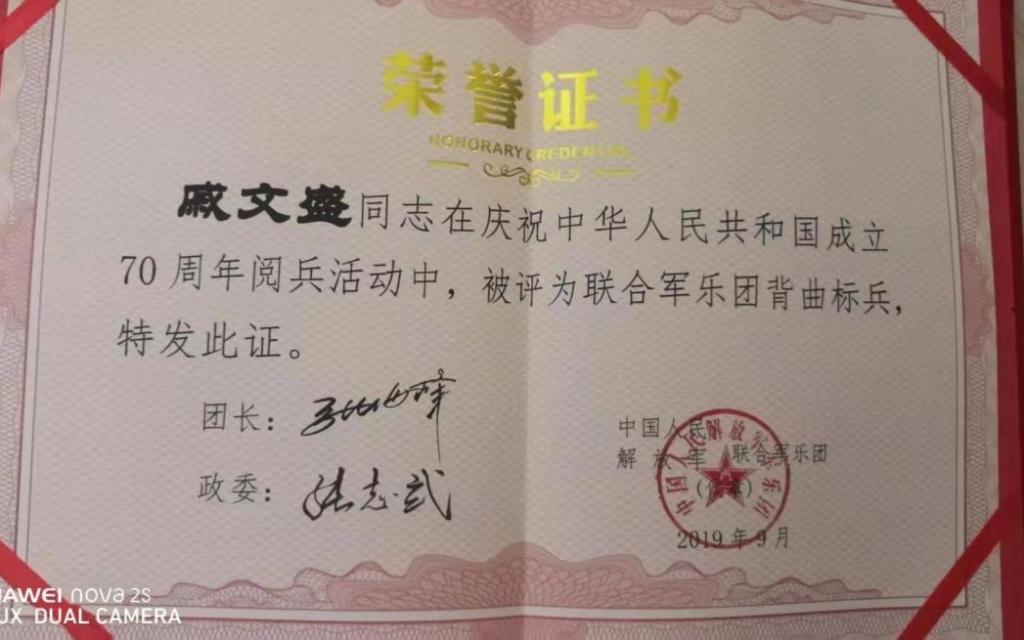 荣誉证书
HONORARY CREDENTIAL
戚文盛同志在庆祝中华人民共和国成立
70 周年阅兵活动中，被评为联合军乐团背曲标兵，
特发此证。
团长：
政委：张志武
中国人民
解放军 联合军乐团
2019 年 9 月
HUAWEI nova 2S
DUAL CAMERA